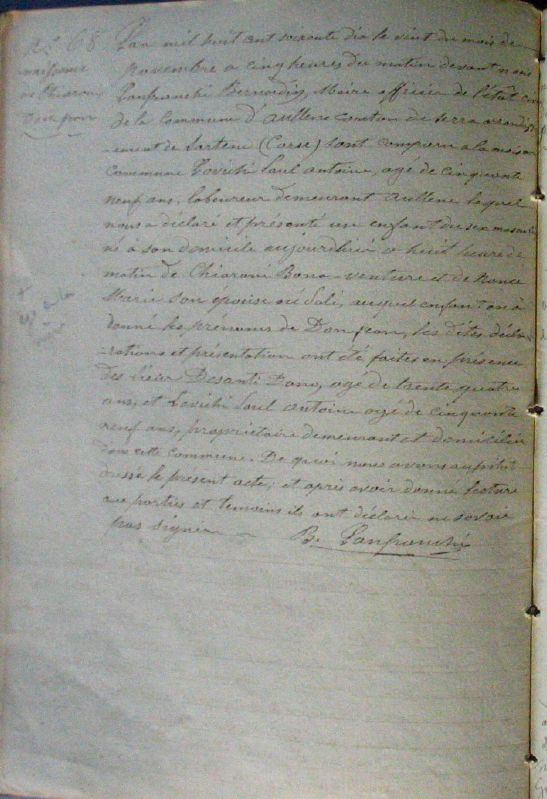 N° 68
naissance
de Chiaroni
Don jean
L'an mil huit cent soixante dix le vint du mois de
novembre a cinq heures du matin devant nous
Lanfranchi Bernardin, Maire officier de l'état civ
de la Commune d'aullene canton de Serra arrondiss
ement de Sartene (Corse) sont comparu a la maison
Commune Lovichi Paul antoine, agé de cinquante
neuf ans, laboureur demeurant Aullene lequel
nous a déclaré et présenté un enfant du sex mascul
né à son domicile aujourdhui a huit heure de
matin de Chiaroni Bona-venture et de
Marie son epouse au quel enfant on à
donné les prénoms de Don jean, les dites décla
-rations et présentation ont été faites en présence
des Desanti agé de trente quatre
ans, et Lovichi Paul antoine agé de cinquante
neuf ans, propriétaire demeurant et domicilier
dans cette commune. De quoi nous avons
dressé le present acte; et après avoir donné lecture
aux parties et temoins ils ont déclaré ne savoir
pas signer
B. Lanfranchi